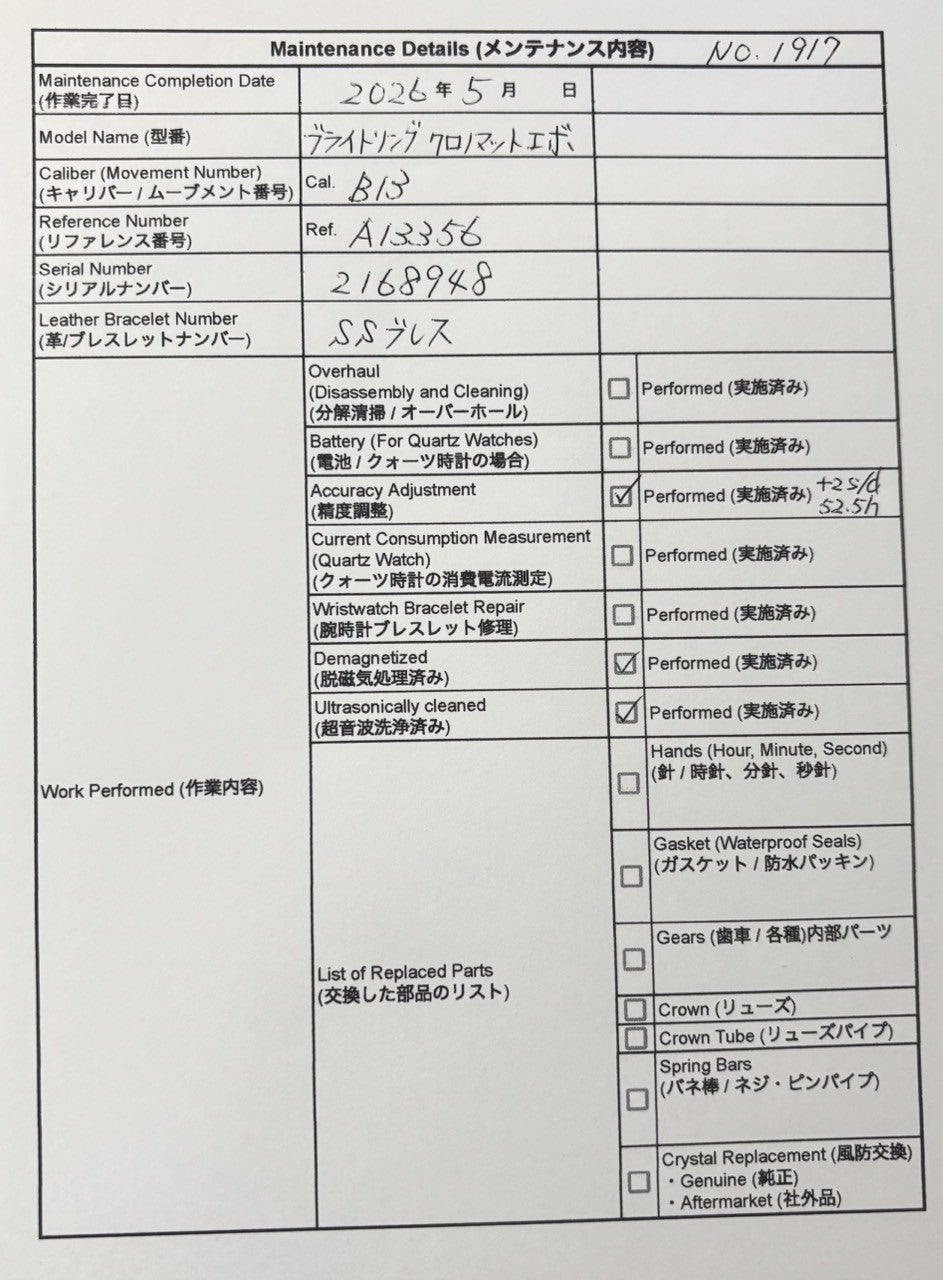 Maintenance Details (メンテナンス内容) NO. 1917
Maintenance Completion Date
(作業完了日)
2026年 5月 日
Model Name (型番)
ブライトリング クロノマットエボ
Caliber (Movement Number)
(キャリバー / ムーブメント番号)
Cal. B13
Reference Number
(リファレンス番号)
Ref. A13356
Serial Number
(シリアルナンバー)
2168948
Leather Bracelet Number
(革/ブレスレットナンバー)
SSブレス
Work Performed (作業内容)
Overhaul
(Disassembly and Cleaning)
(分解清掃 / オーバーホール)
Performed (実施済み)
Battery (For Quartz Watches)
(電池 / クォーツ時計の場合)
Performed (実施済み)
Accuracy Adjustment
(精度調整)
Performed (実施済み) +2s/d
52.5h
Current Consumption Measurement
(Quartz Watch)
(クォーツ時計の消費電流測定)
Performed (実施済み)
Wristwatch Bracelet Repair
(腕時計ブレスレット修理)
Performed (実施済み)
Demagnetized
(脱磁気処理済み)
Performed (実施済み)
Ultrasonically cleaned
(超音波洗浄済み)
Performed (実施済み)
List of Replaced Parts
(交換した部品のリスト)
Hands (Hour, Minute, Second)
(針 / 時針、分針、秒針)
Gasket (Waterproof Seals)
(ガスケット / 防水パッキン)
Gears (歯車 / 各種)内部パーツ
Crown (リューズ)
Crown Tube (リューズパイプ)
Spring Bars
(バネ棒 / ネジ・ピンパイプ)
Crystal Replacement (風防交換)
・Genuine (純正)
・Aftermarket (社外品)